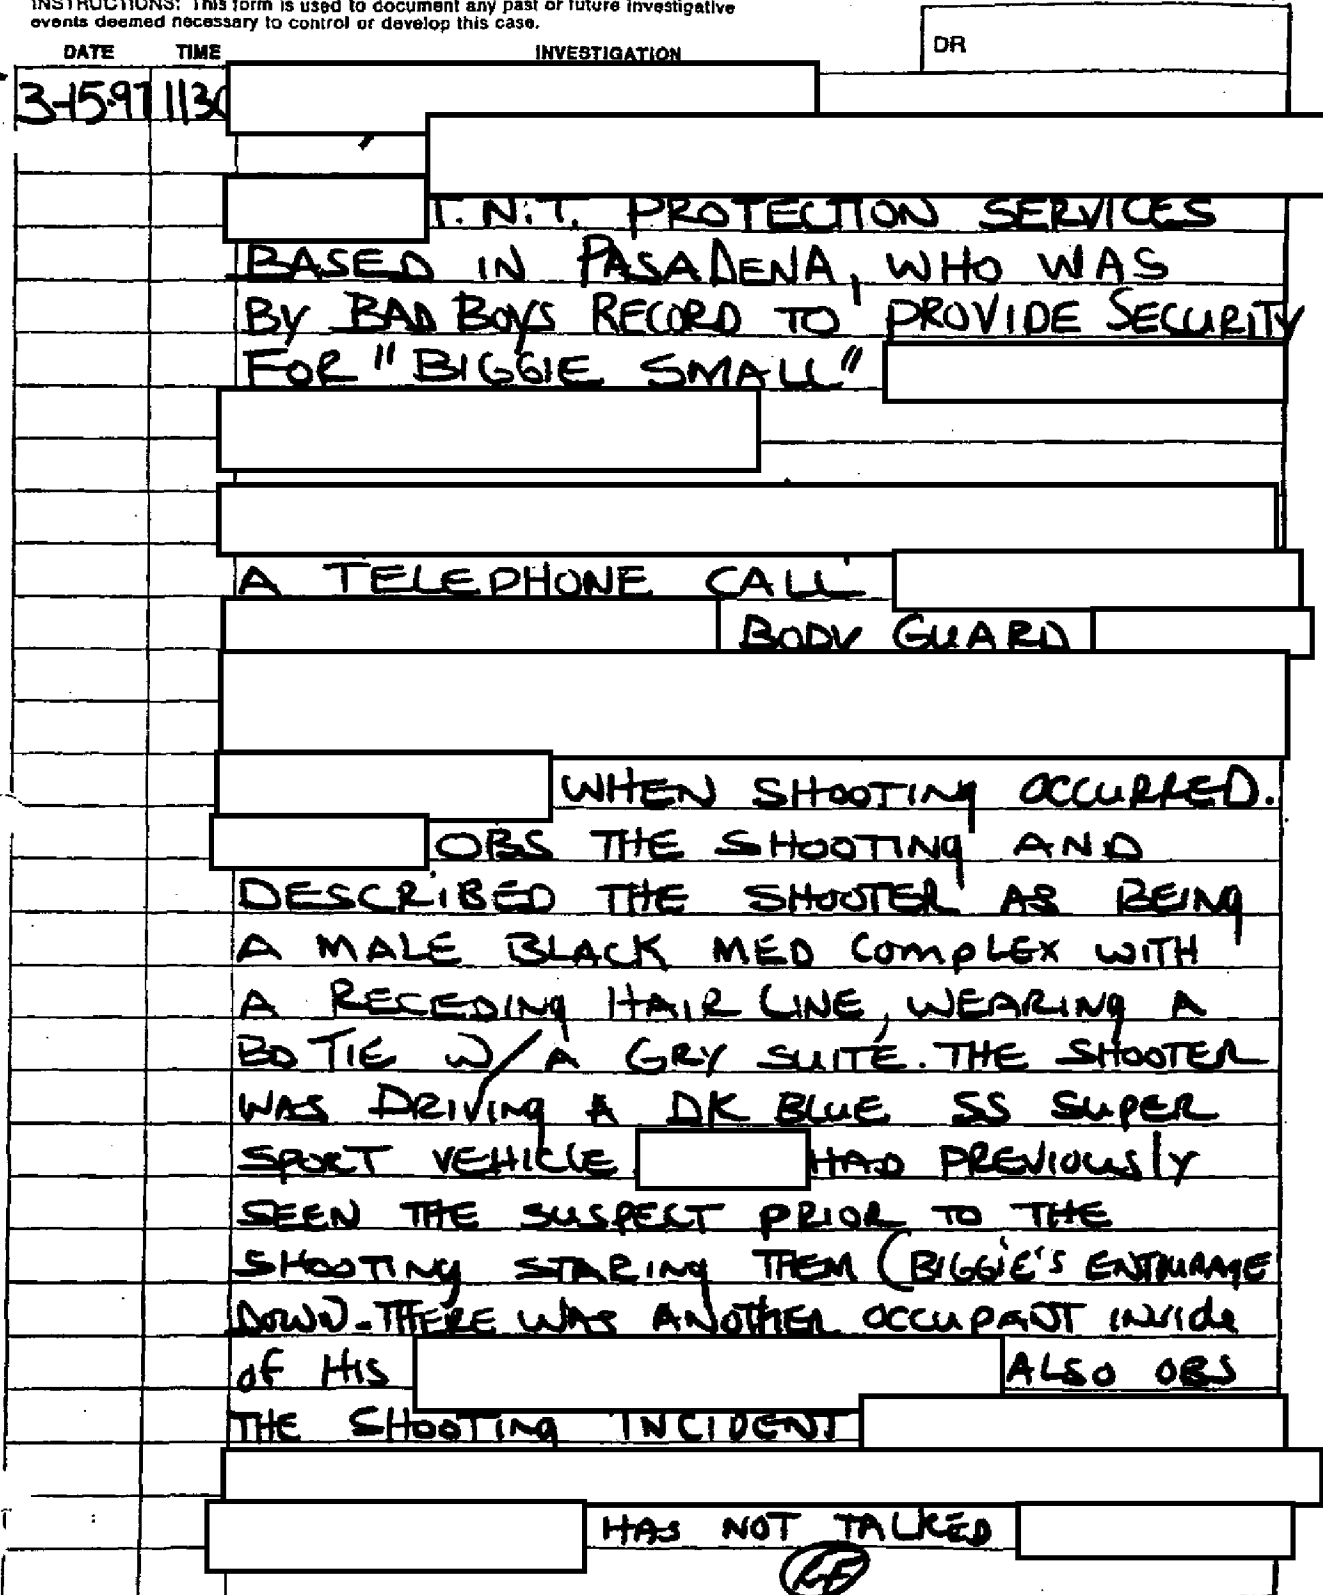 INSTRUCTIONS: This form is used to document any past or future investigative
events deemed necessary to control or develop this case.
DR
DATE TIME INVESTIGATION
3-15-97 1130
T.N.T. PROTECTION SERVICES
BASED IN PASADENA, WHO WAS
BY BAD BOYS RECORD TO PROVIDE SECURITY
FOR "BIGGIE SMALL"
A TELEPHONE CALL
BODY GUARD
WHEN SHOOTING OCCURRED.
OBS THE SHOOTING AND
DESCRIBED THE SHOOTER AS BEING
A MALE BLACK MED COMPLEX WITH
A RECEDING HAIR LINE, WEARING A
BO TIE W/ A GRY SUITE. THE SHOOTER
WAS DRIVING A DK BLUE SS SUPER
SPORT VEHICLE HAD PREVIOUSLY
SEEN THE SUSPECT PRIOR TO THE
SHOOTING STARING THEM (BIGGIE'S ENTOURAGE
DOWN. THERE WAS ANOTHER OCCUPANT INSIDE
OF HIS ALSO OBS
THE SHOOTING INCIDENT
HAS NOT TALKED